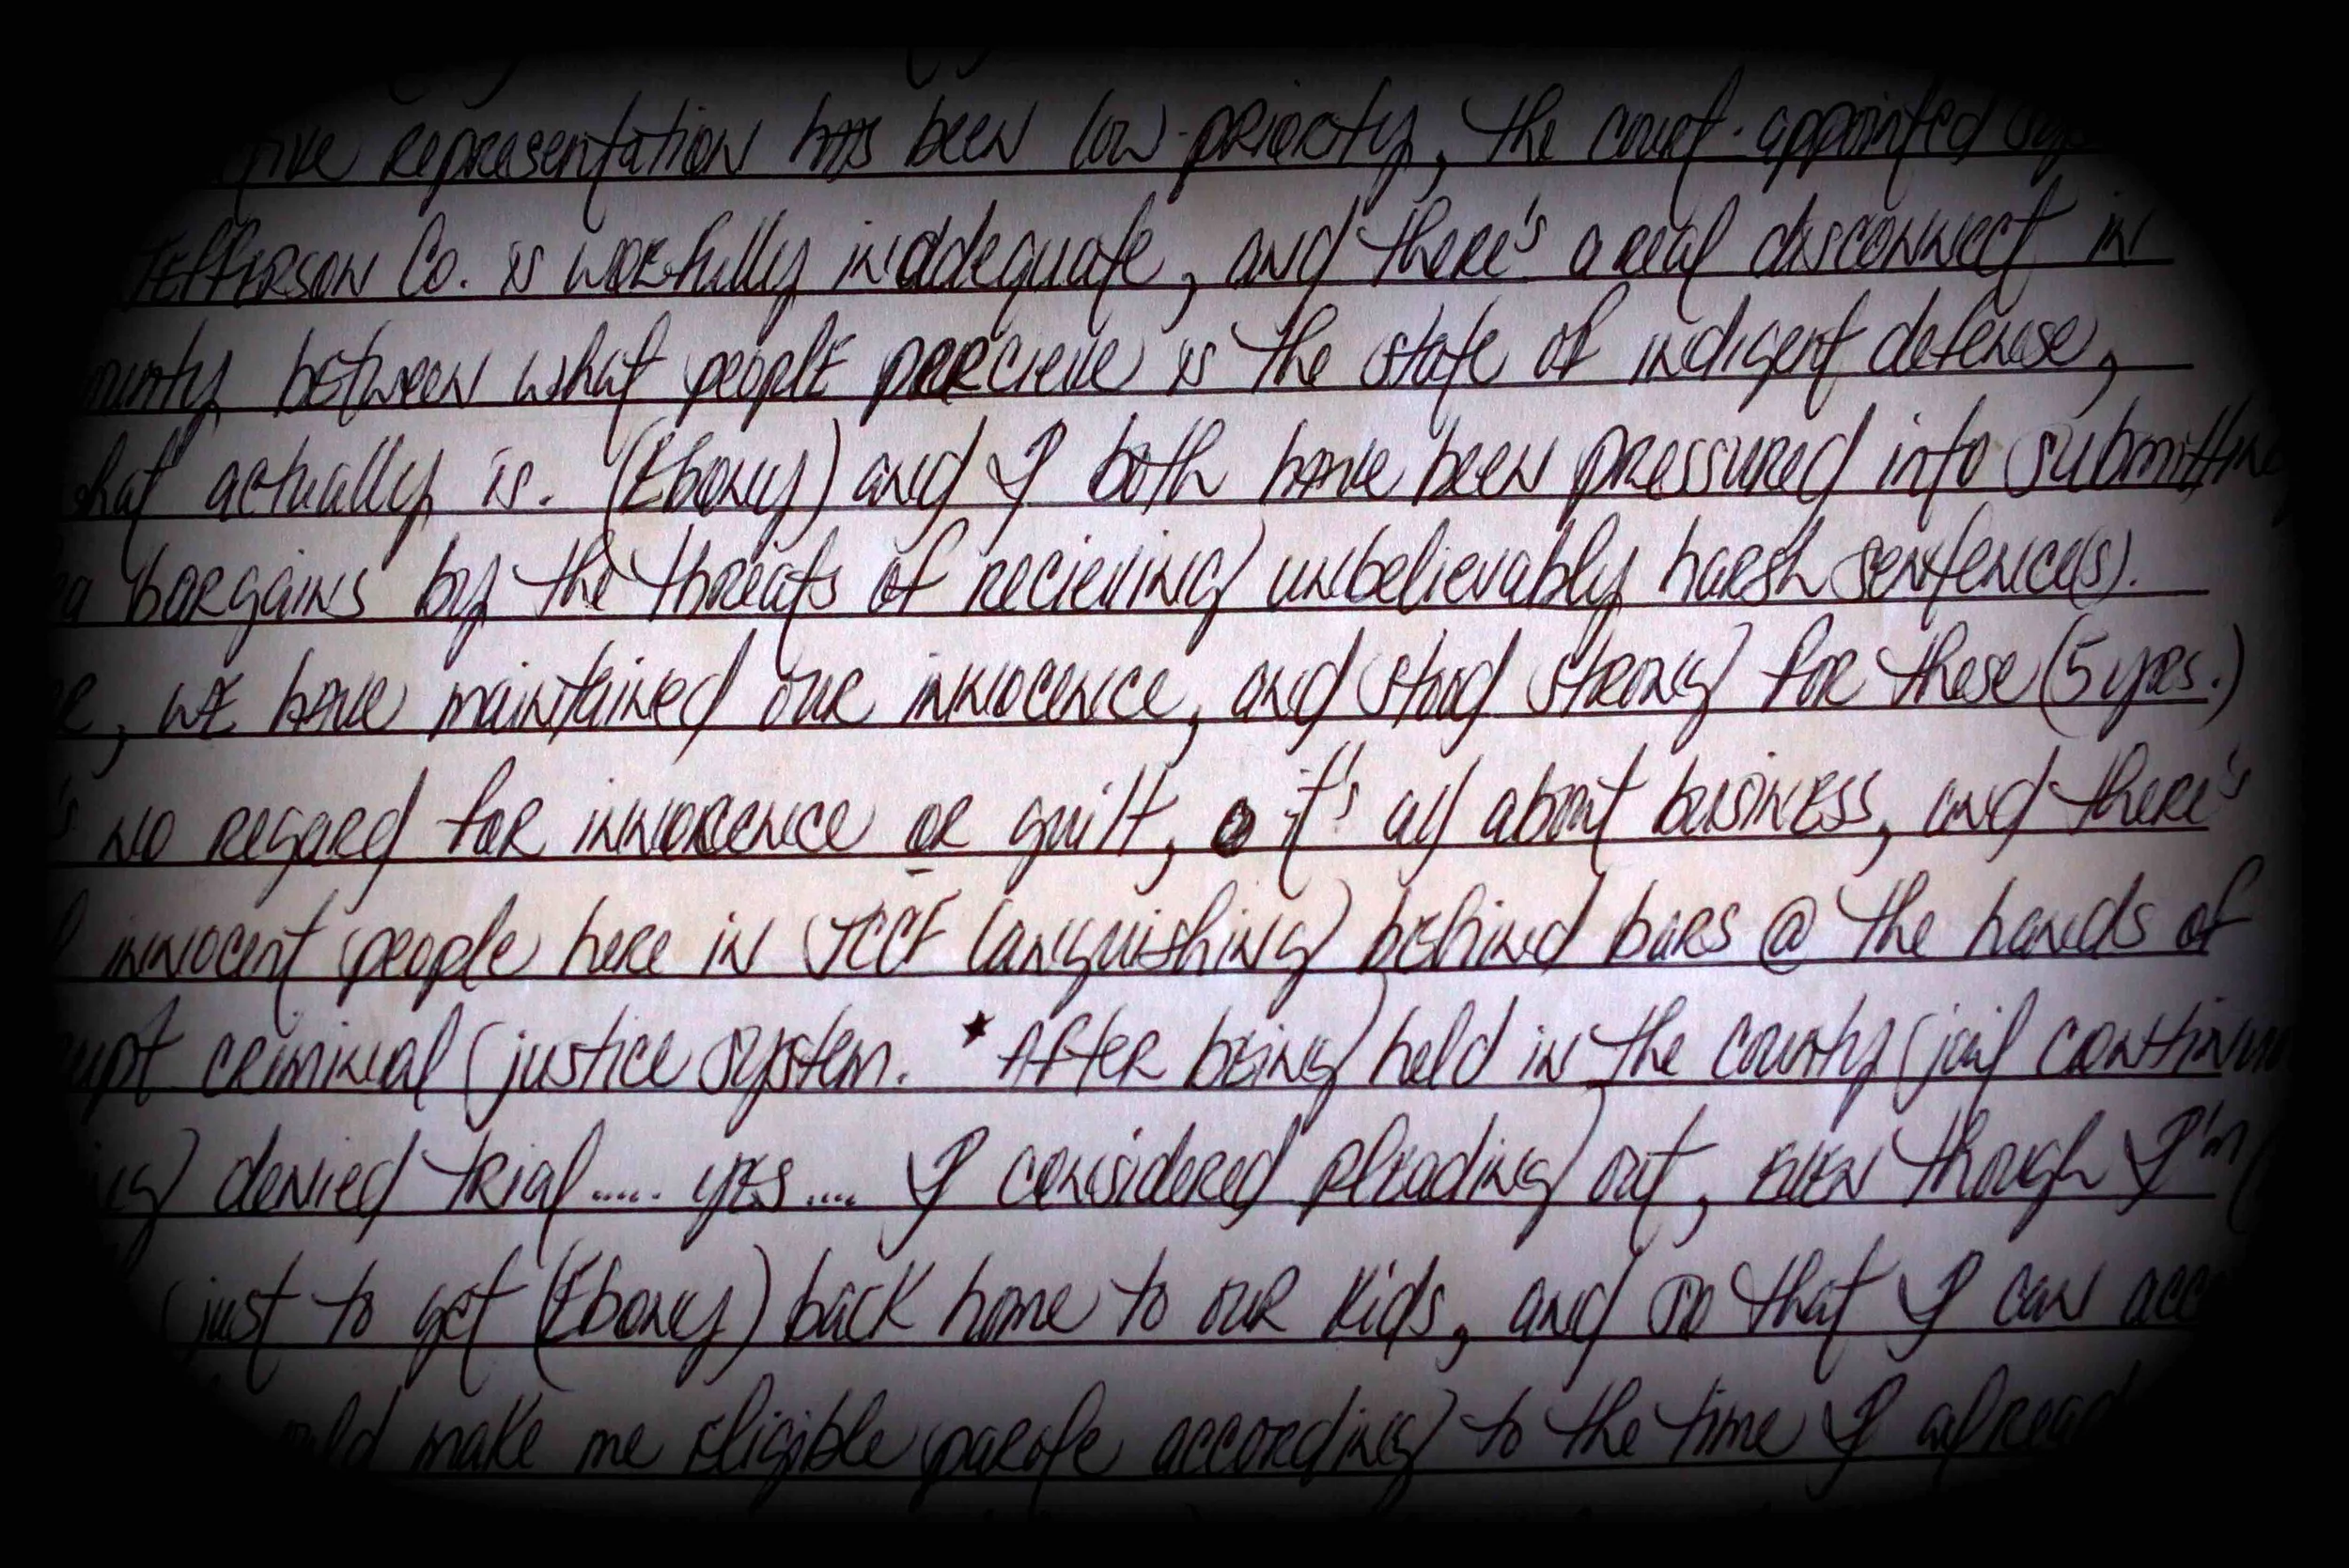 representation has been low-priority, the court-appointed
Jefferson Co. is woefully inaddequate, and there's a real disconnect in
between what people percieve is the state of indigent defense,
what actually is. (Ebony) and I both have been pressured into submitting
bargains by the threats of recieving unbelievably harsh sentence(s).
, we have maintained our innocence, and stood strong for these (5 yrs.)
no regard for innocence or guilt, it's all about business, and there's
innocent people here in JCCF languishing behind bars @ the hands of
criminal justice system. *After being held in the county jail
denied trial..... yes.... I considered pleading out, even though I'm
just to get (Ebony) back home to our kids, and so that I can
make me eligible parole according to the time I